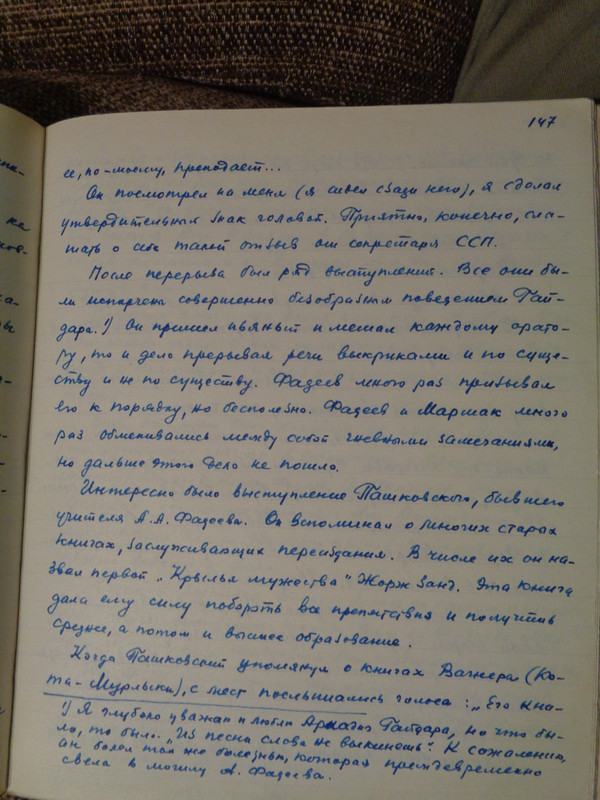 147
ее, по-моему, преподает...
Он посмотрел на меня (я сидел сзади него), я сделал
утвердительный знак головой. Приятно, конечно, слы-
шать о себе такой отзыв от секретаря ССП.
После перерыва был ряд выступлений. Все они бы-
ли испорчены совершенно безобразным поведением Гай-
дара.¹) Он пришел пьяный и мешал каждому орато-
ру, то и дело прерывая речи выкриками и по суще-
ству и не по существу. Фадеев много раз призывал
его к порядку, но бесполезно. Фадеев и Маршак много
раз обменивались между собой гневными замечаниями,
но дальше этого дело не пошло.
Интересно было выступление Пашковского, бывшего
учителя А.А. Фадеева. Он вспоминал о многих старых
книгах, заслуживающих переиздания. В числе их он на-
звал первой „Крылья мужества" Жорж Занд. Эта книга
дала ему силу побороть все препятствия и получить
среднее, а потом и высшее образование.
Когда Пашковский упомянул о книгах Вагнера (Ко-
та-Мурлыки), с мест послышались голоса: „Его кни-
¹) Я глубоко уважал и любил Аркадия Гайдара, но что бы-
ло, то было. „Из песни слова не выкинешь". К сожалению,
он болел той же болезнью, которая преждевременно
свела в могилу А. Фадеева.